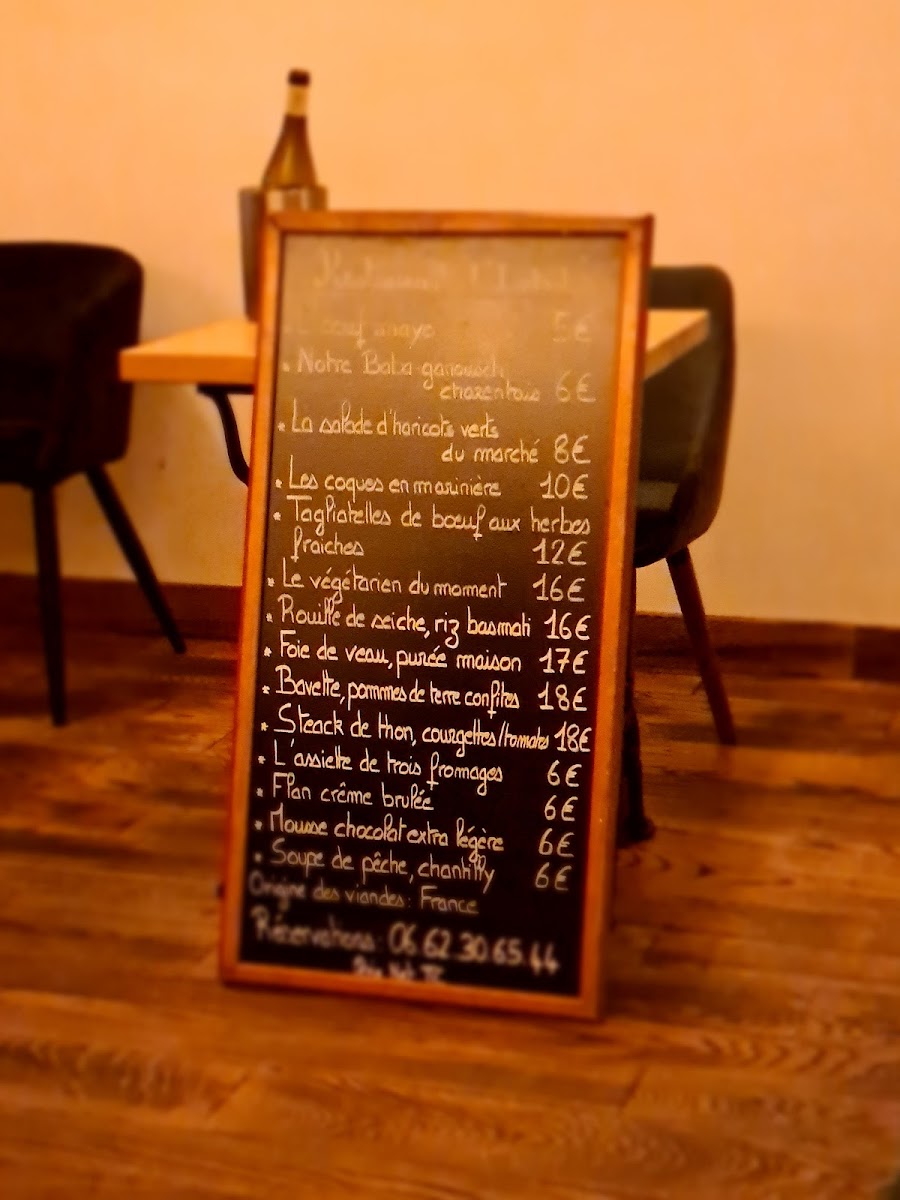 Restaurant
L'oeuf mayo 5€
* Notre Baba ganousch
charentais 6€
* La salade d'haricots verts
du marché 8€
* Les coques en marinière 10€
* Tagliatelles de boeuf aux herbes
fraiches 12€
* Le végétarien du moment 16€
* Rouille de seiche, riz basmati 16€
* Foie de veau, purée maison 17€
* Bavette, pommes de terre confites 18€
* Steack de thon, courgettes/tomates 18€
* L'assiette de trois fromages 6€
* Flan crême brulée 6€
* Mousse chocolat extra légère 6€
* Soupe de pêche, chantilly 6€
Origine des viandes: France
Réservations: 06.62.30.65.44